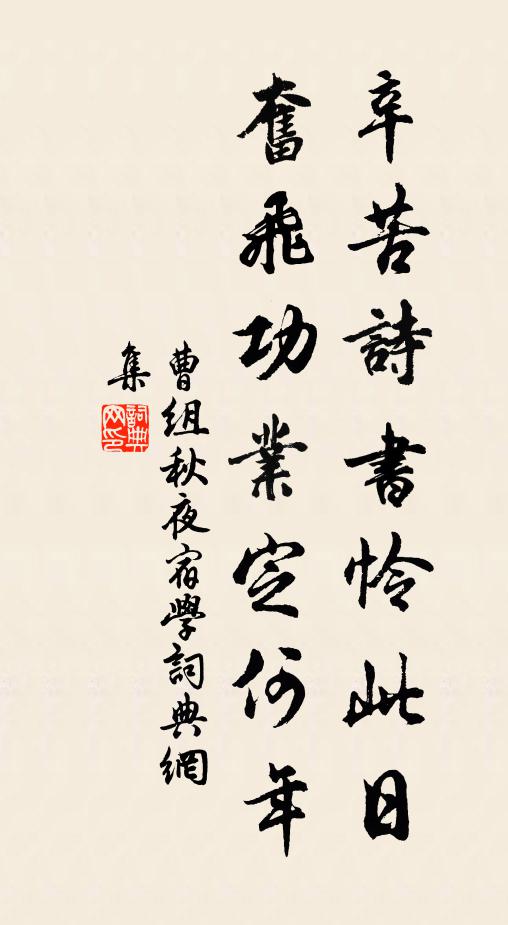 辛苦詩書怜此日
奮飛功業定何年
曹組秋夜宿學詞典網
集
詞典网印